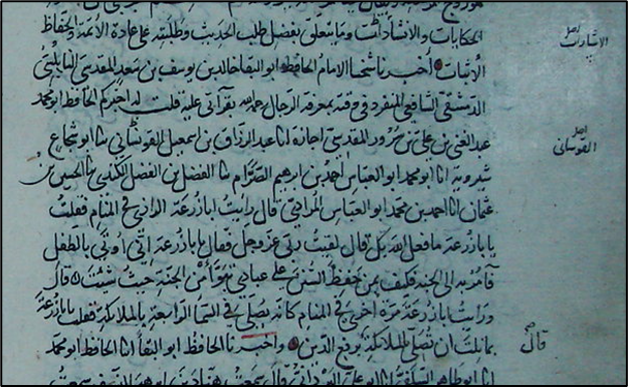 الحكايات والانشادات وما يتعلق بفضل طلب الحديث وطلبته على عادة الأئمة والحفاظ
الأثبات أخبرنا شيخنا الامام الحافظ ابو البقا خالد بن يوسف بن سعد المقدسي النابلسي
الدمشقي الشافعي المنفرد في وقته بمعرفة الرجال رحمه الله بقرآتي عليه قلت له اخبركم الحافظ ابو محمد
عبد الغني بن علي بن سرور المقدسي اجازة انا عبد الرزاق بن اسمعيل القومشاني نا ابو شجاع
شيرويه انا ابو محمد ابو العباس احمد بن ابرهيم الصرام نا الفضل بن الفضل الكندي نا الحسين بن
عثمان انا احمد بن محمد ابو العباس المرادي قال رايت ابا زرعة الرازي في المنام فقلت
يا با زرعة ما فعل الله بك قال لقيت ربي عز وجل فقال يا با زرعة اني اوتى بالطفل
فآمر به الى الجنة فكيف بمن حفظ السنن على عبادي تبوأ من الجنة حيث شئت قال
ورايت ابا زرعة مرة اخرى في المنام كانه يصلي في السما الرابعة بالملائكة فقلت يا با زرعة
بم نلت ان تصلي بالملائكة برفع اليدين واخبرنا الحافظ ابو البقا انا الحافظ ابو محمد
انا ابو طاهر السلفي انا ابو علي البرداني قال سمعت هناد بن ابرهيم النسفي سمعت
اصل
الانشادات
اصل
القوساني
صح
قال